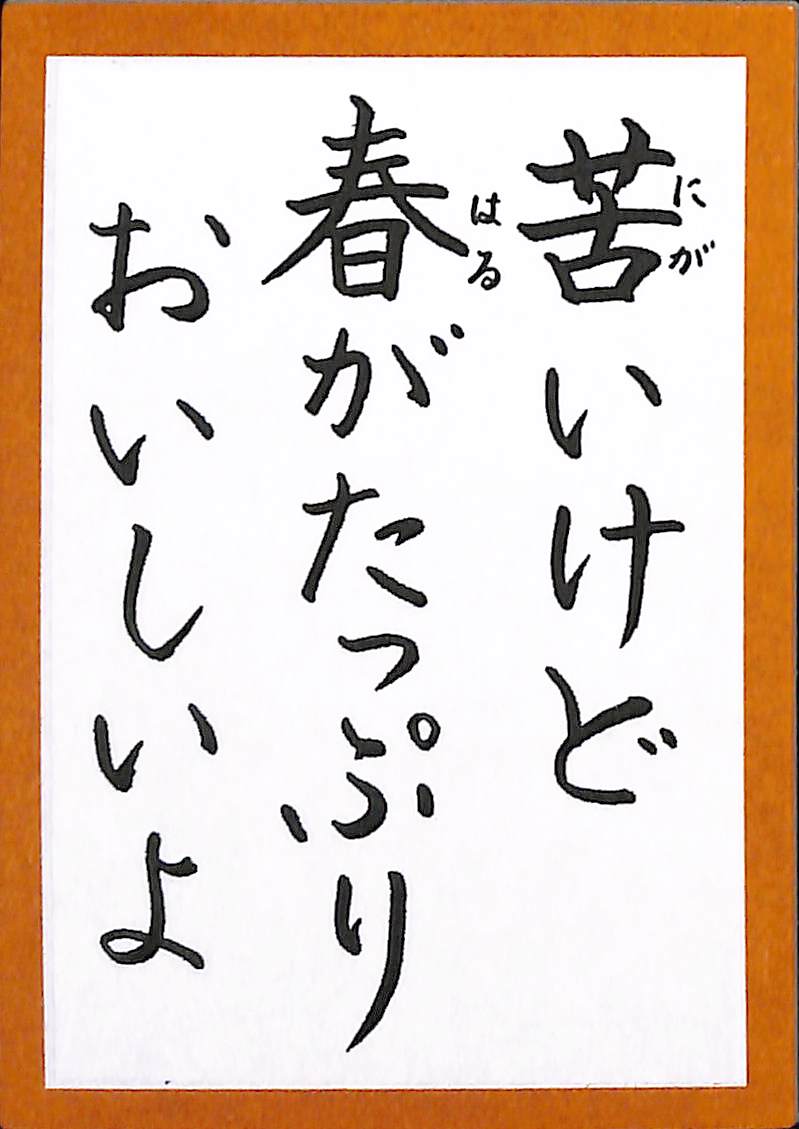 苦いけど
にが
春がたっぷり
はる
おいしいよ